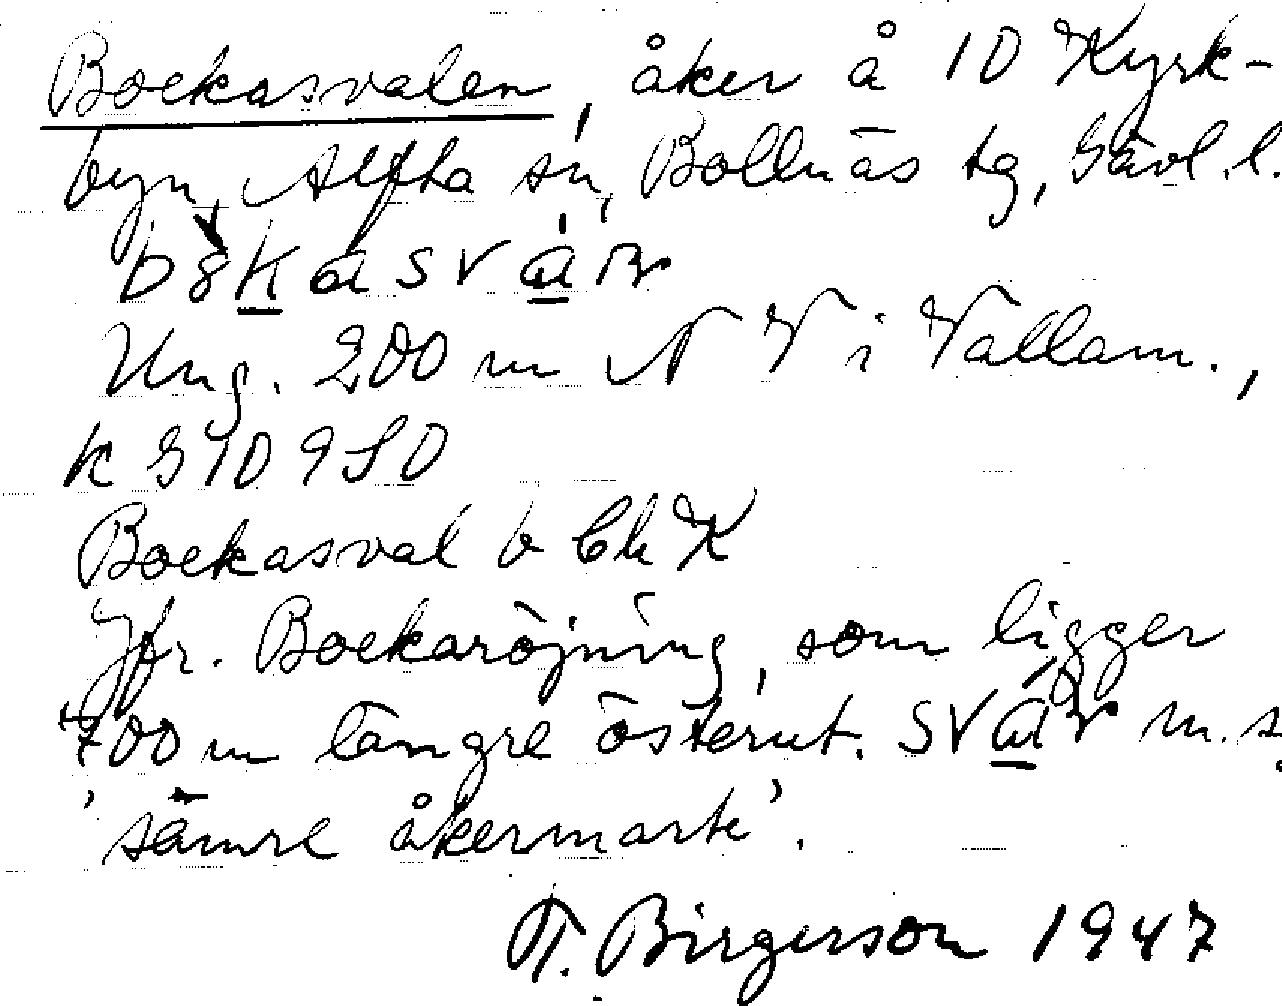 Boekasvalen, åker å 10 Kyrk-
byn, Alfta sn, Bollnäs tg, Gävl. l.
Ung. 200 m N V i Vallam.,
k G 10 9 S 0
Boekasval b Ch K
Jfr. Boekaröjning, som ligger
700 m längre österut. m. s
'sämre åkermark'.
T. Birgerson 1947